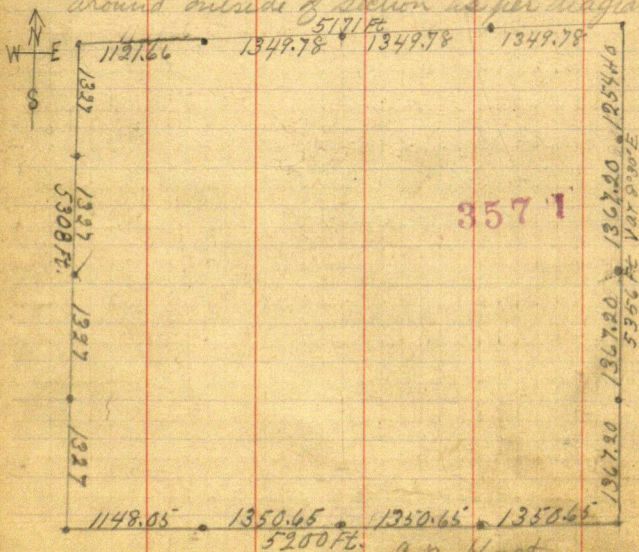 around outside of section as per diagram
N
W E
S
5171 ft
1121.66 1349.78 1349.78 1349.78
1327
1327
5308 ft.
1327
1327
1254.40
1367.20
1367.20
1367.20
5356 ft Var 9°30'E
3571
1148.05 1350.65 1350.65 1350.65
5200 Ft.